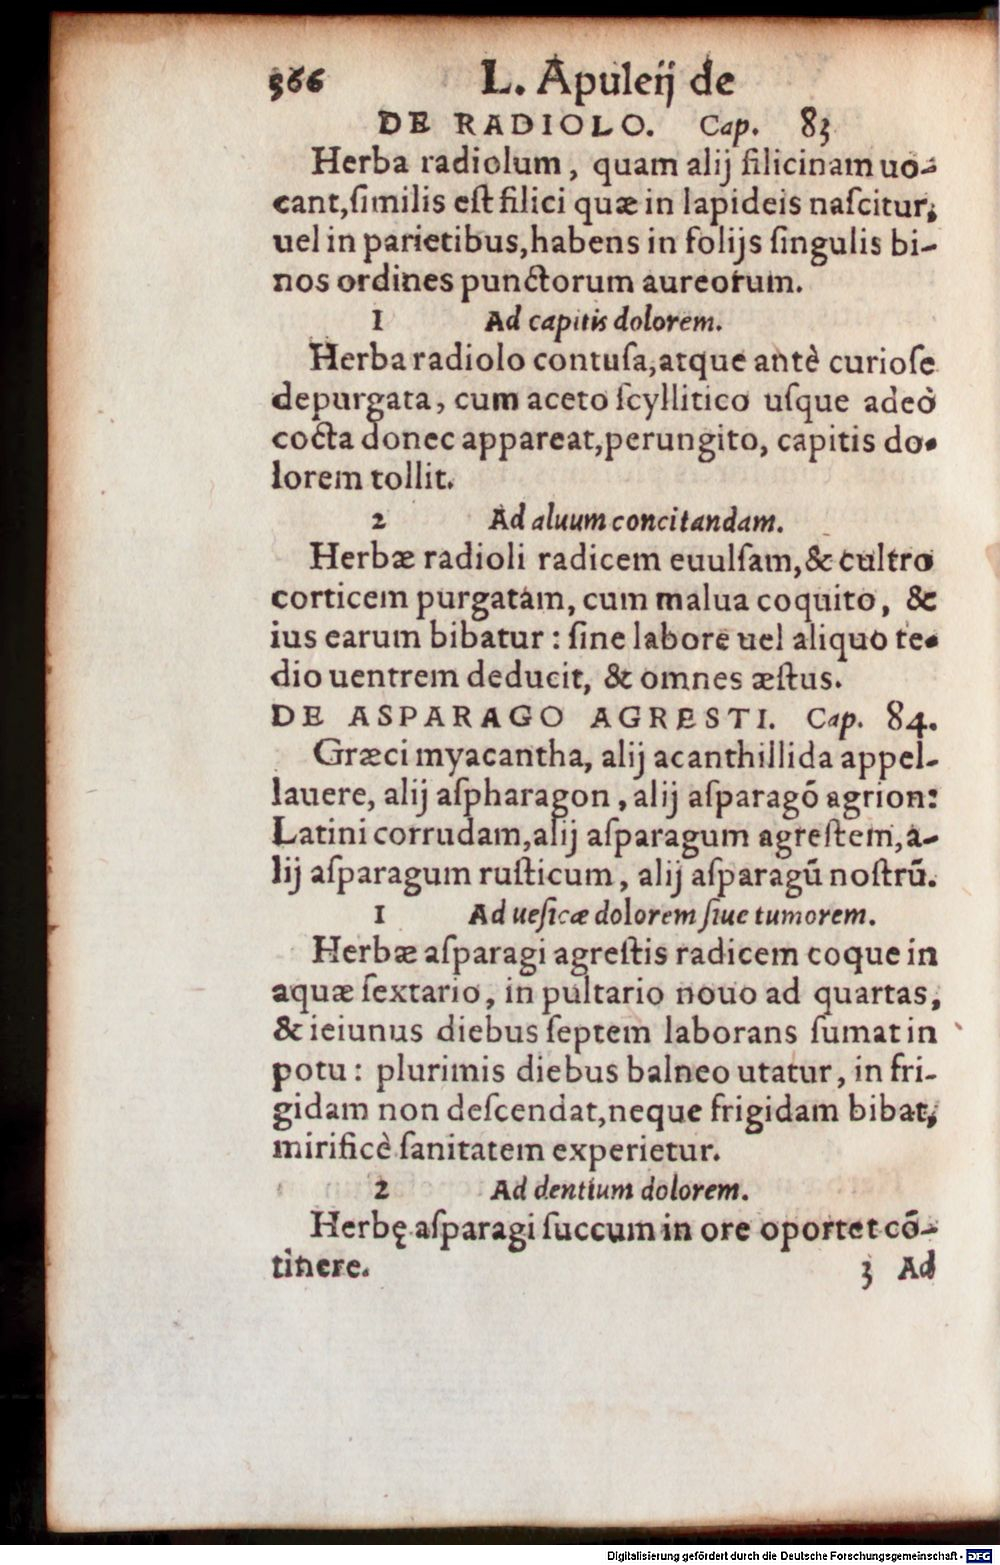 366 L. Apuleij de
DE RADIOLO. Cap. 83
Herba radiolum, quam alij filicinam uo-
cant,ſimilis eſt filici quæ in lapideis naſcitur,
uel in parietibus,habens in folijs ſingulis bi-
nos ordines punctorum aureorum.
1 Ad capitis dolorem.
Herba radiolo contuſa,atque antè curioſe
depurgata, cum aceto ſcyllitico uſque adeò
cocta donec appareat,perungito, capitis do-
lorem tollit.
2 Ad aluum concitandam.
Herbæ radioli radicem euulſam,& cultro
corticem purgatam, cum malua coquito, &
ius earum bibatur : ſine labore uel aliquo te-
dio uentrem deducit, & omnes æſtus.
DE ASPARAGO AGRESTI. Cap. 84.
Græci myacantha, alij acanthillida appel-
lauere, alij aſpharagon, alij aſparagõ agrion:
Latini corrudam,alij aſparagum agreſtem,a-
lij aſparagum ruſticum, alij aſparagũ noſtrũ.
1 Ad ueſicæ dolorem ſiue tumorem.
Herbæ aſparagi agreſtis radicem coque in
aquæ ſextario, in pultario nouo ad quartas,
& ieiunus diebus ſeptem laborans ſumat in
potu: plurimis diebus balneo utatur, in fri-
gidam non deſcendat,neque frigidam bibat,
mirificè ſanitatem experietur.
2 Ad dentium dolorem.
Herbę aſparagi ſuccum in ore oportet cõ-
tinere. 3 Ad
Digitalisierung gefördert durch die Deutsche Forschungsgemeinschaft - DFG